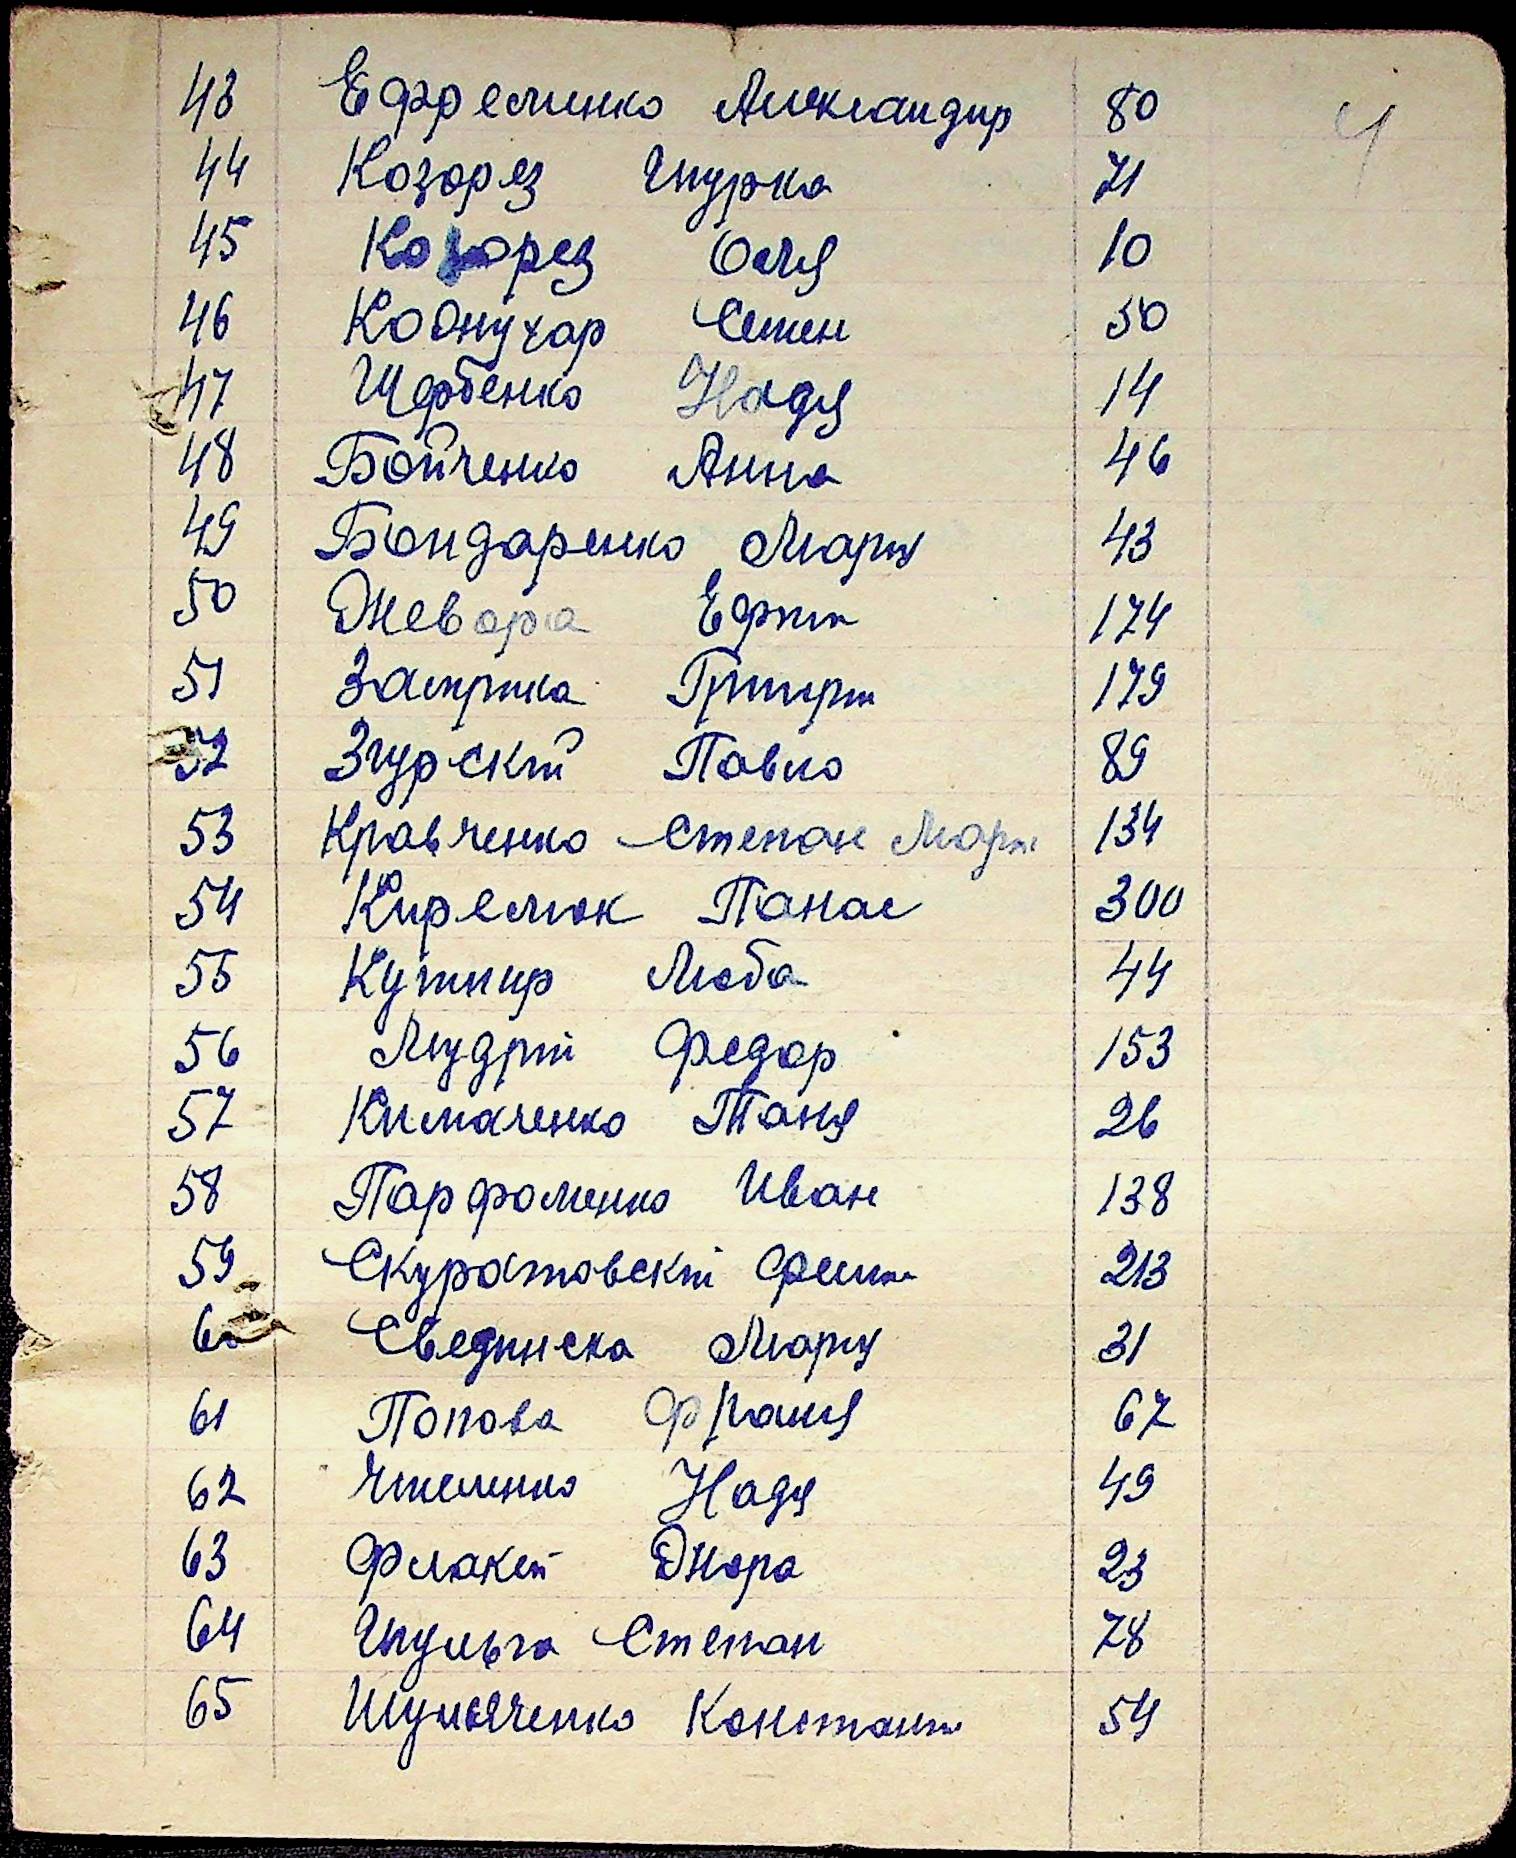 43 Ефременко Александир 80 4
44 Козорез Шурка 71
45 Козорез Оля 10
46 Кобнухар Семен 50
47 Щербенко Надя 14
48 Бойченко Анна 46
49 Бондаренко Мария 43
50 Джевара Ефим 174
51 Заирика Григирий 179
52 Згурский Павло 89
53 Кравченко Степан Мари 134
54 Кирелюк Панас 300
55 Кушнир Люба 44
56 Мудрий Федор 153
57 Климаченко Таня 26
58 Парфоменко Иван 138
59 Скуратовский 213
60 Свединска Мария 31
61 Попова Франя 67
62 Надя 49
63 Флакей Днора 23
64 Шульга Степан 78
65 Шульяченко Константин 54